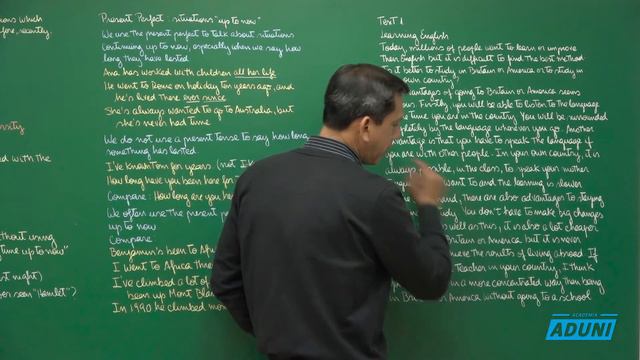 ons which
fore, recently.
ersity
ed with the
thout using
time up to now"
st night)
er seen "Hamlet")
Present Perfect: situations "up to now"
We use the present perfect to talk about situations
continuing up to now, especially when we say how
long they have lasted.
Ana has worked with children all her life
He went to Rome on holiday ten years ago, and
he's lived there ever since
She's always wanted to go to Australia, but
she's never had time
We do not use a present tense to say how long
something has lasted.
I've known Tom for years (not I k
How long have you been here for
Compare: How long are you he
We often use the present pe
up to now
Compare
Benjamin's been to Afri
I went to Africa thre
I've climbed a lot of
been up Mont Blan
In 1990 he climbed mo
Test 1
Learning English
Today, millions of people want to learn or improve
their English but it is difficult to find the best method
is it better to study in Britain or America or to study in
own country?
antages of going to Britain or America seems
ous. Firstly, you will be able to listen to the language
e time you are in the country. You will be surrounded
pletely by the language wherever you go. Another
advantage is that you have to speak the language if
you are with other people. In your own country, it is
always possible, in the class, to speak your mother
want to and the learning is slower
and, there are also advantages to staying
study. You don't have to make big changes
well as this, it is also a lot cheaper
Britain or America but it is never
ieve the results of living abroad. If
teacher in your country, I think
in a more concentrated way than being
in Britain or America without going to a school
ACADEMIA
ADUNI